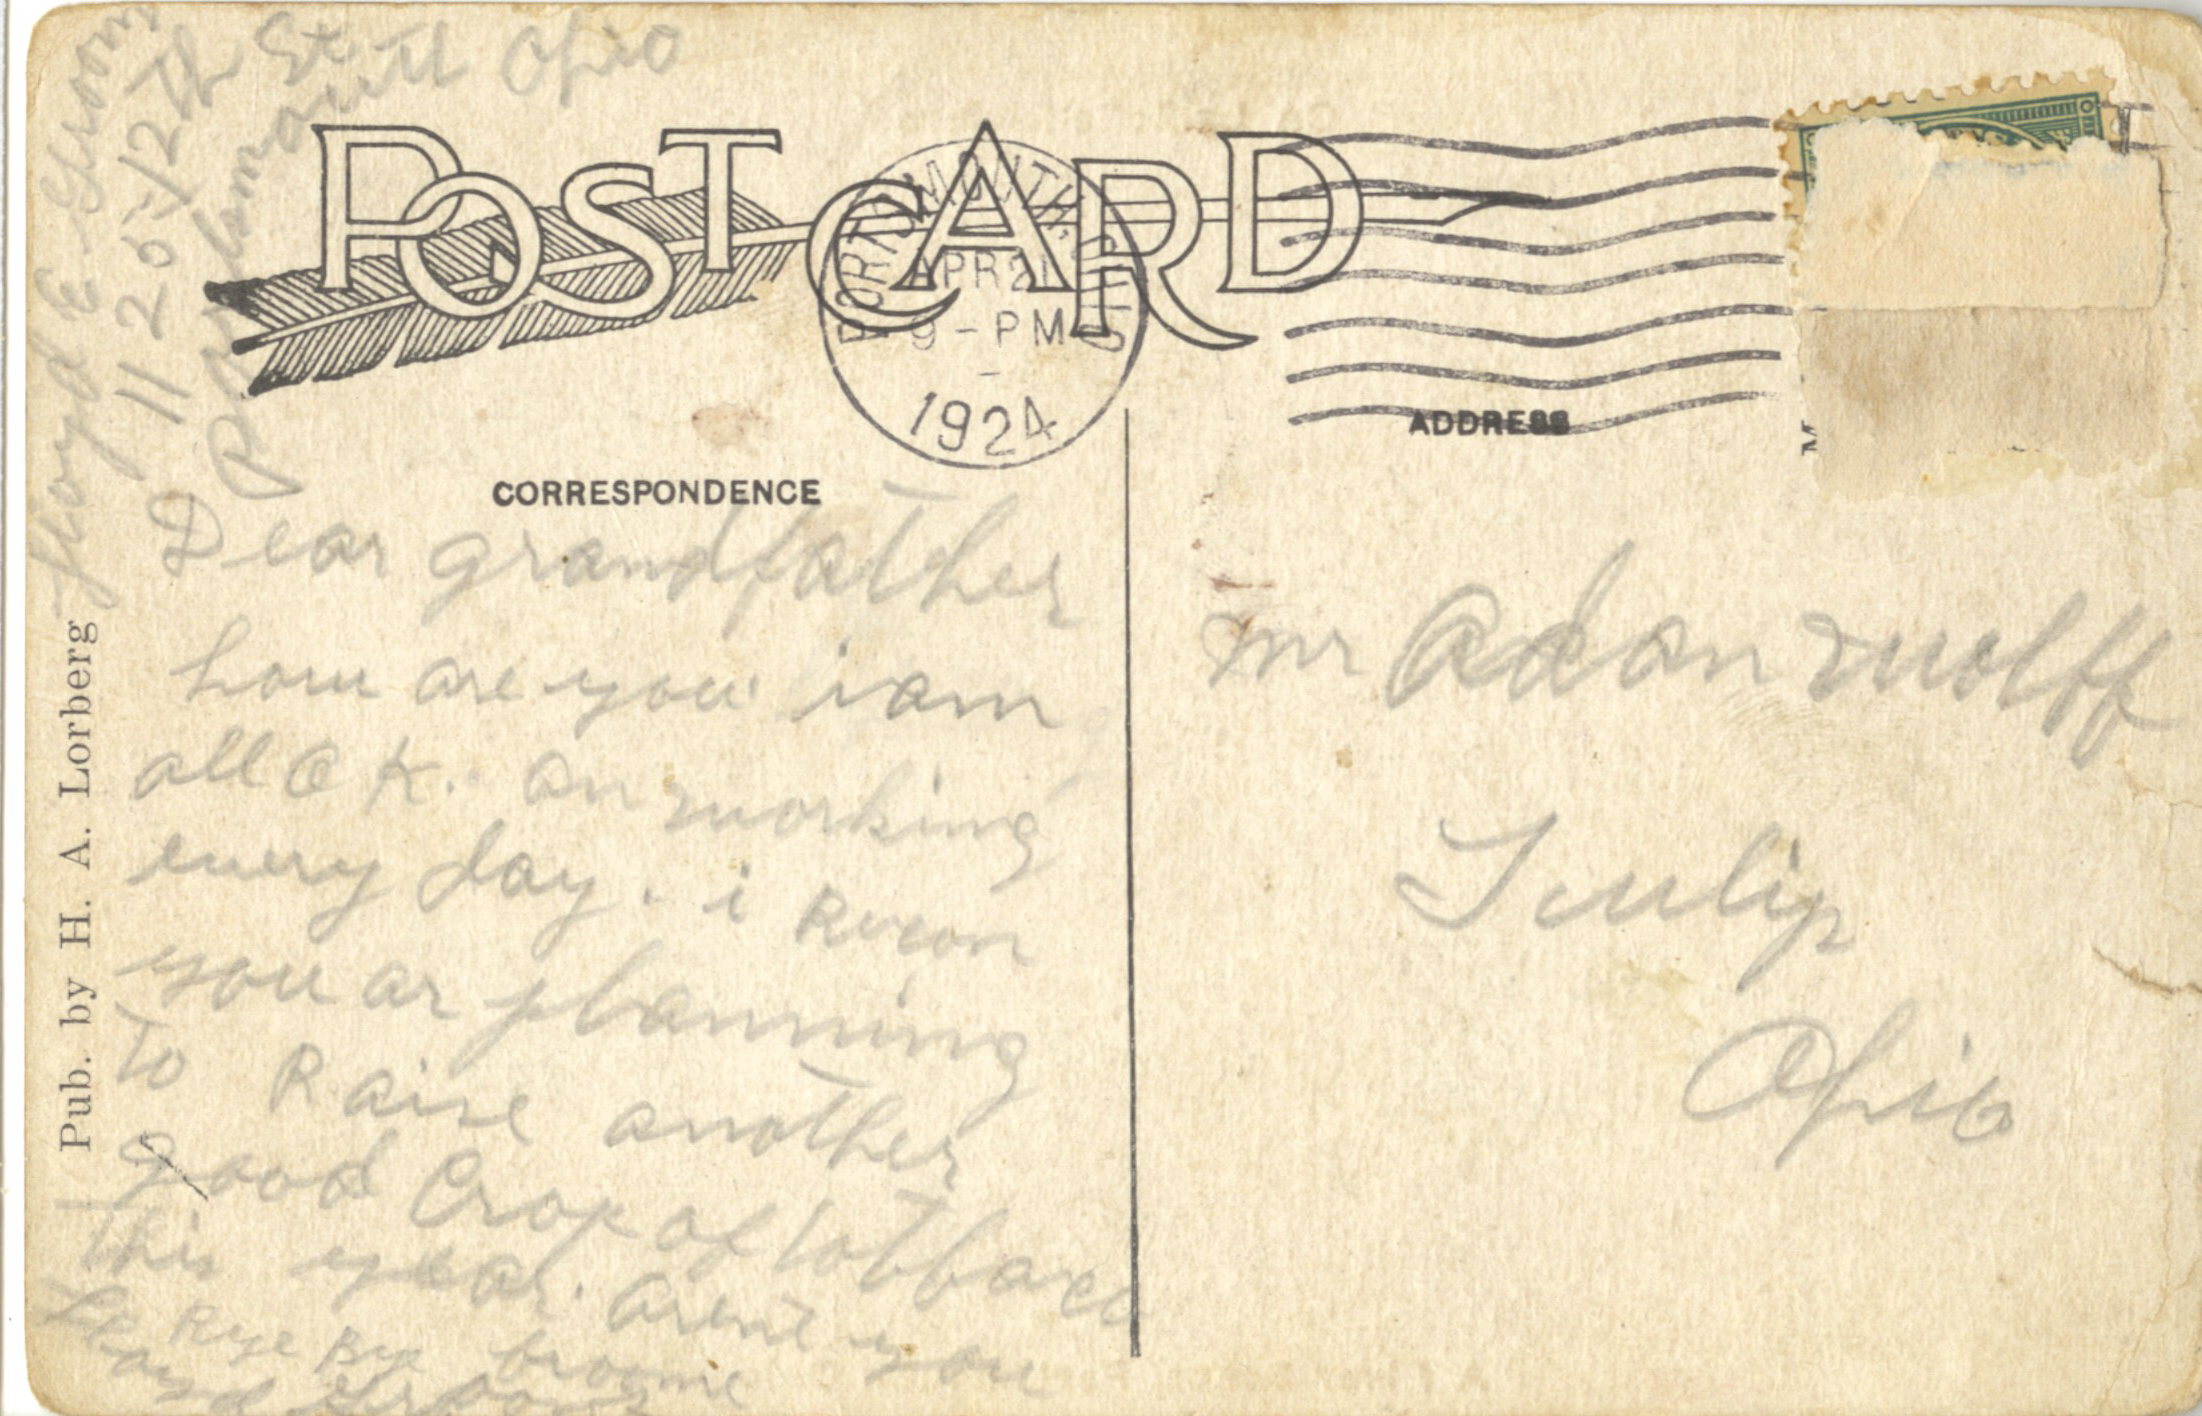 Floyd E Groom
11 20 12th St
Portsmouth Ohio
POST CARD
PORTSMOUTH, OHIO
APR 21
9-PM
1924
ADDRESS
CORRESPONDENCE
Pub. by H. A. Lorberg
Dear grandfather
how are you i am
all O K. an working
every day. i
you ar planning
To Raise another
good Crop of tobbaco
This year. arent you
Bye
Floyd Groom
Mr Adam Wolff
Tulip
Ohio